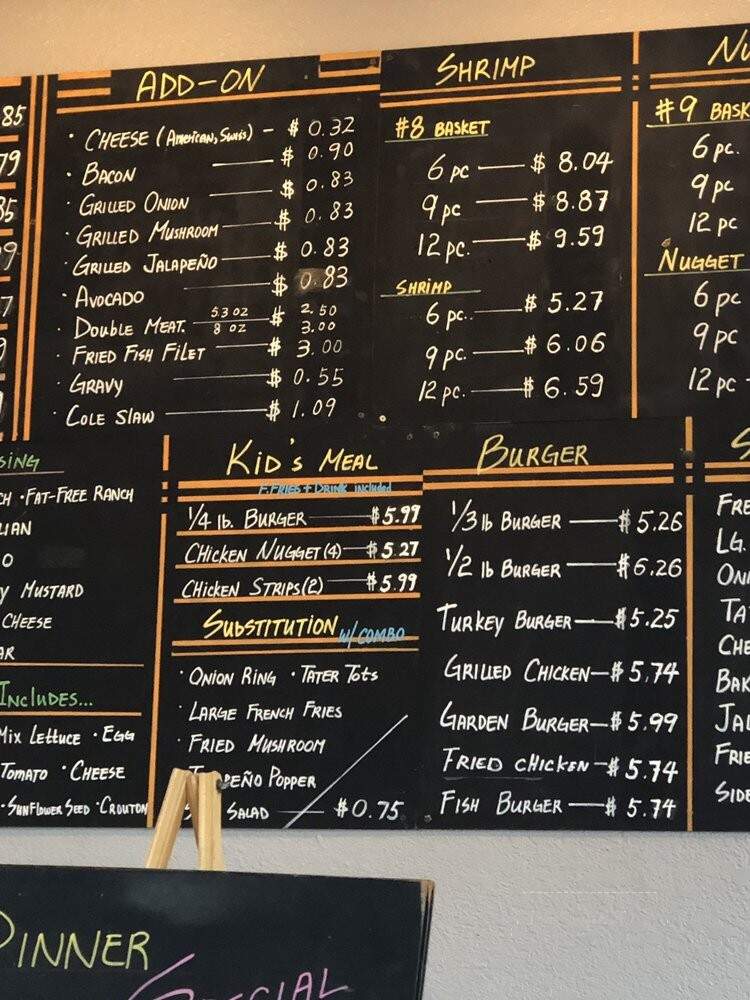 85
79
85
9
7
9
ADD-ON
· CHEESE (American, Swiss) - $ 0.32
· BACON $ 0.90
· GRILLED ONION $ 0.83
· GRILLED MUSHROOM $ 0.83
· GRILLED JALAPEÑO $ 0.83
· AVOCADO $ 0.83
· DOUBLE MEAT. 5.3 OZ $ 2.50
8 OZ 3.00
· FRIED FISH FILET $ 3.00
· GRAVY $ 0.55
· COLE SLAW $ 1.09
SHRIMP
#8 BASKET
6 pc $ 8.04
9 pc $ 8.87
12 pc. $ 9.59
SHRIMP
6 pc. $ 5.27
9 pc. $ 6.06
12 pc. $ 6.59
NU
#9 BASK
6 pc.
9 pc
12 pc
NUGGET
6 pc
9 pc
12 pc
SING
CH · FAT-FREE RANCH
LIAN
O
Y MUSTARD
CHEESE
AR
INCLUDES...
MIX LETTUCE · EGG
TOMATO · CHEESE
· SUNFLOWER SEED · CROUTON
KID'S MEAL
F. FRIES + DRINK included
1/4 lb. BURGER $5.99
CHICKEN NUGGET (4) $5.27
CHICKEN STRIPS (2) $5.99
SUBSTITUTION W/ COMBO
· ONION RING · TATER TOTS
· LARGE FRENCH FRIES
· FRIED MUSHROOM
PEÑO POPPER
SALAD $0.75
BURGER
1/3 lb BURGER $ 5.26
1/2 lb BURGER $ 6.26
TURKEY BURGER $ 5.25
GRILLED CHICKEN $ 5.74
GARDEN BURGER $ 5.99
FRIED CHICKEN $ 5.74
FISH BURGER $ 5.74
S
FRE
LG.
ONI
TA
CHE
BAK
JAL
FRIE
SIDE
DINNER
SPECIAL